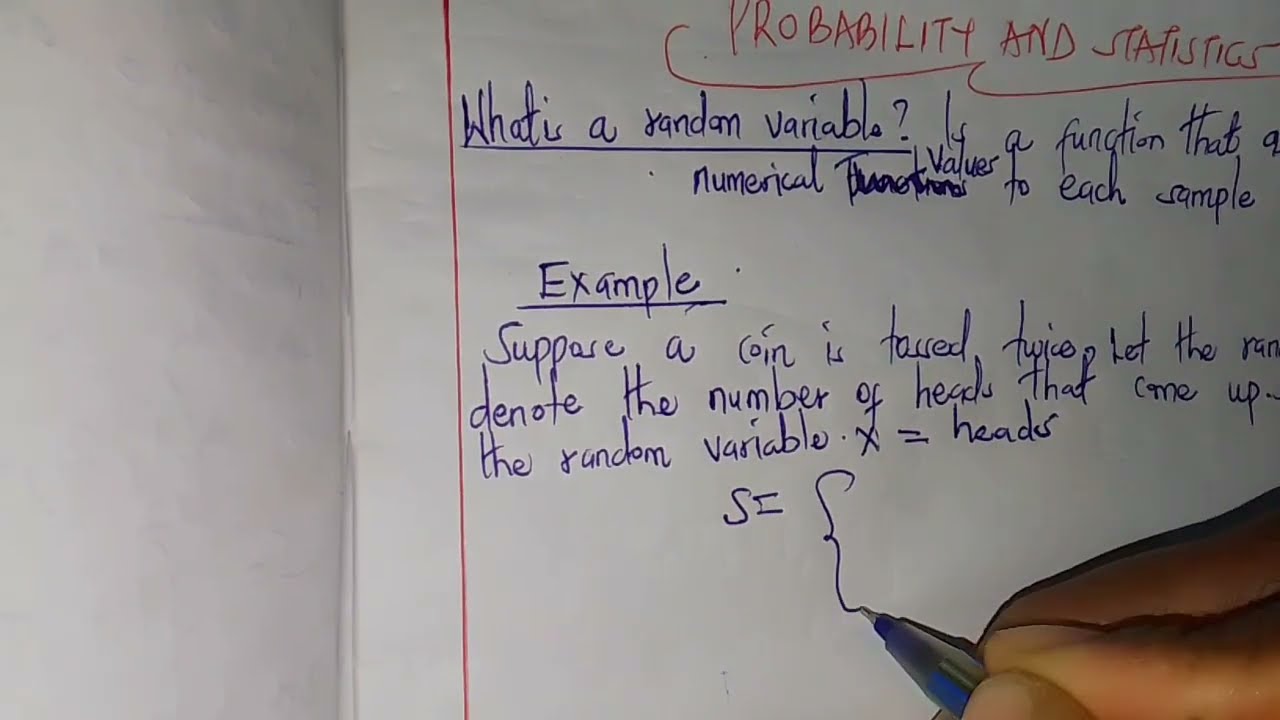 PROBABILITY AND STATISTICS
What is a random variable? Is a function that a
numerical values to each sample
Example
Suppose a coin is tossed twice, Let the ran
denote the number of heads that come up.
the random variable. X = heads
S= {